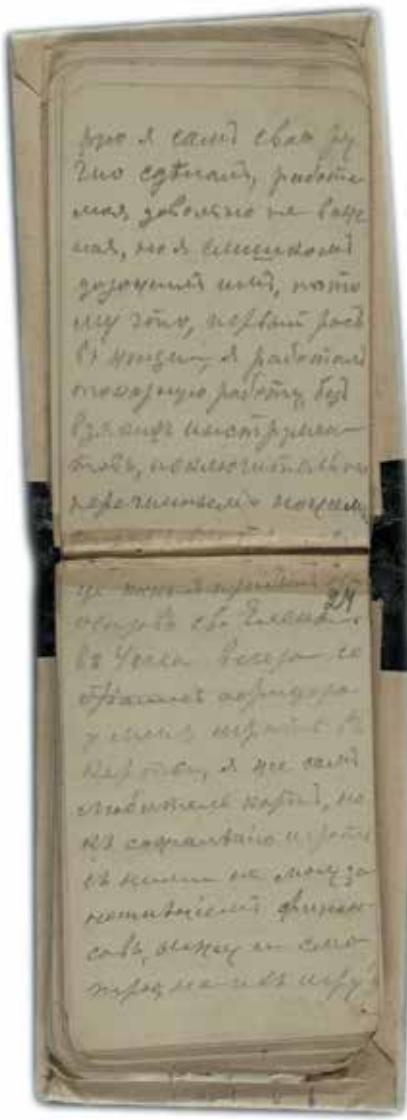 что я самъ свои ру
чно сдѣлалъ, работа
моя, довольно не важ
ная, но я слишкомъ
дорожилъ ней, пото
му что, первый разъ
въ жизни, я работалъ
токарную работу, безъ
всякихъ инструмен-
товъ, исключительно
перочиннымъ ножемъ
24
острова св. Елена
въ 4 часа вечера со
брались
у меня играть въ
карты, я же самъ
любитель картъ, но
къ сожалѣнію играть
съ ними не могу за
неимѣніемъ финан-
совъ, сижу и смо
трю на ихъ игру